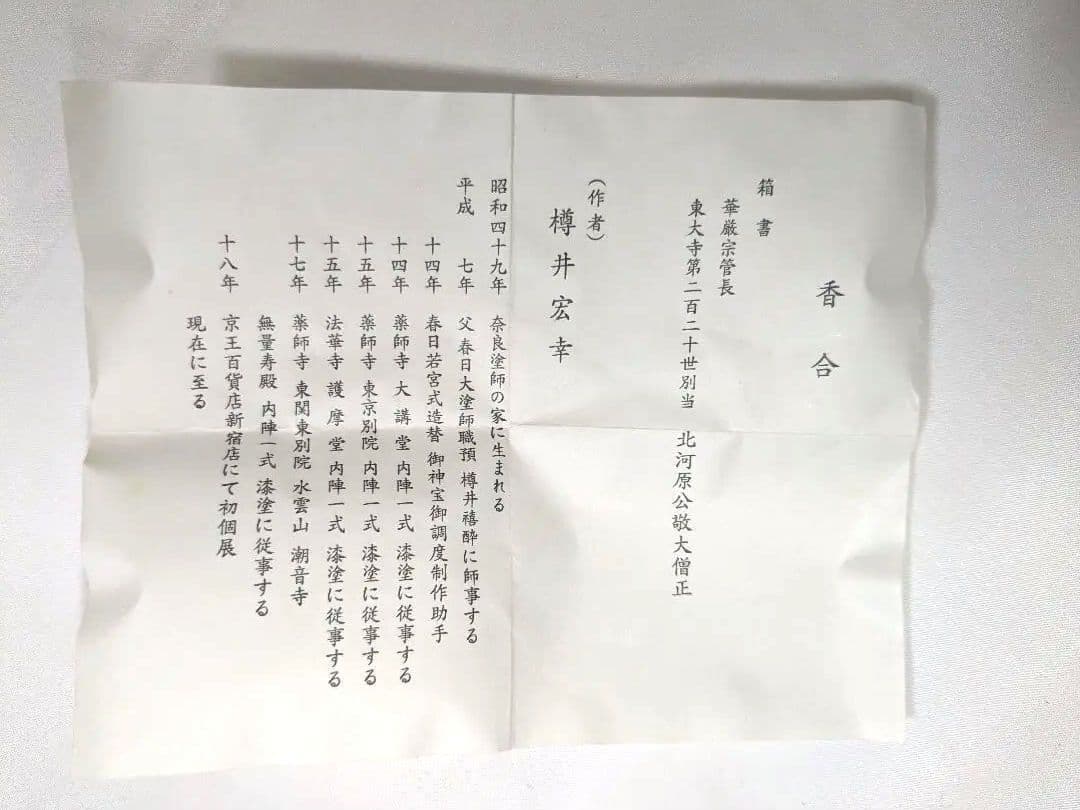 香合
箱書
華厳宗管長
東大寺第二百二十世別当 北河原公敬大僧正
(作者)
樽井宏幸
昭和四十九年 奈良塗師の家に生まれる
平成 七年 父 春日大塗師職預 樽井禧酔に師事する
十四年 春日若宮式造替 御神宝御調度制作助手
十四年 薬師寺 大講堂 内陣一式 漆塗に従事する
十五年 薬師寺 東京別院 内陣一式 漆塗に従事する
十五年 法華寺 護摩堂 内陣一式 漆塗に従事する
十七年 薬師寺 東関東別院 水雲山 潮音寺
無量寿殿 内陣一式 漆塗に従事する
十八年 京王百貨店新宿店にて初個展
現在に至る